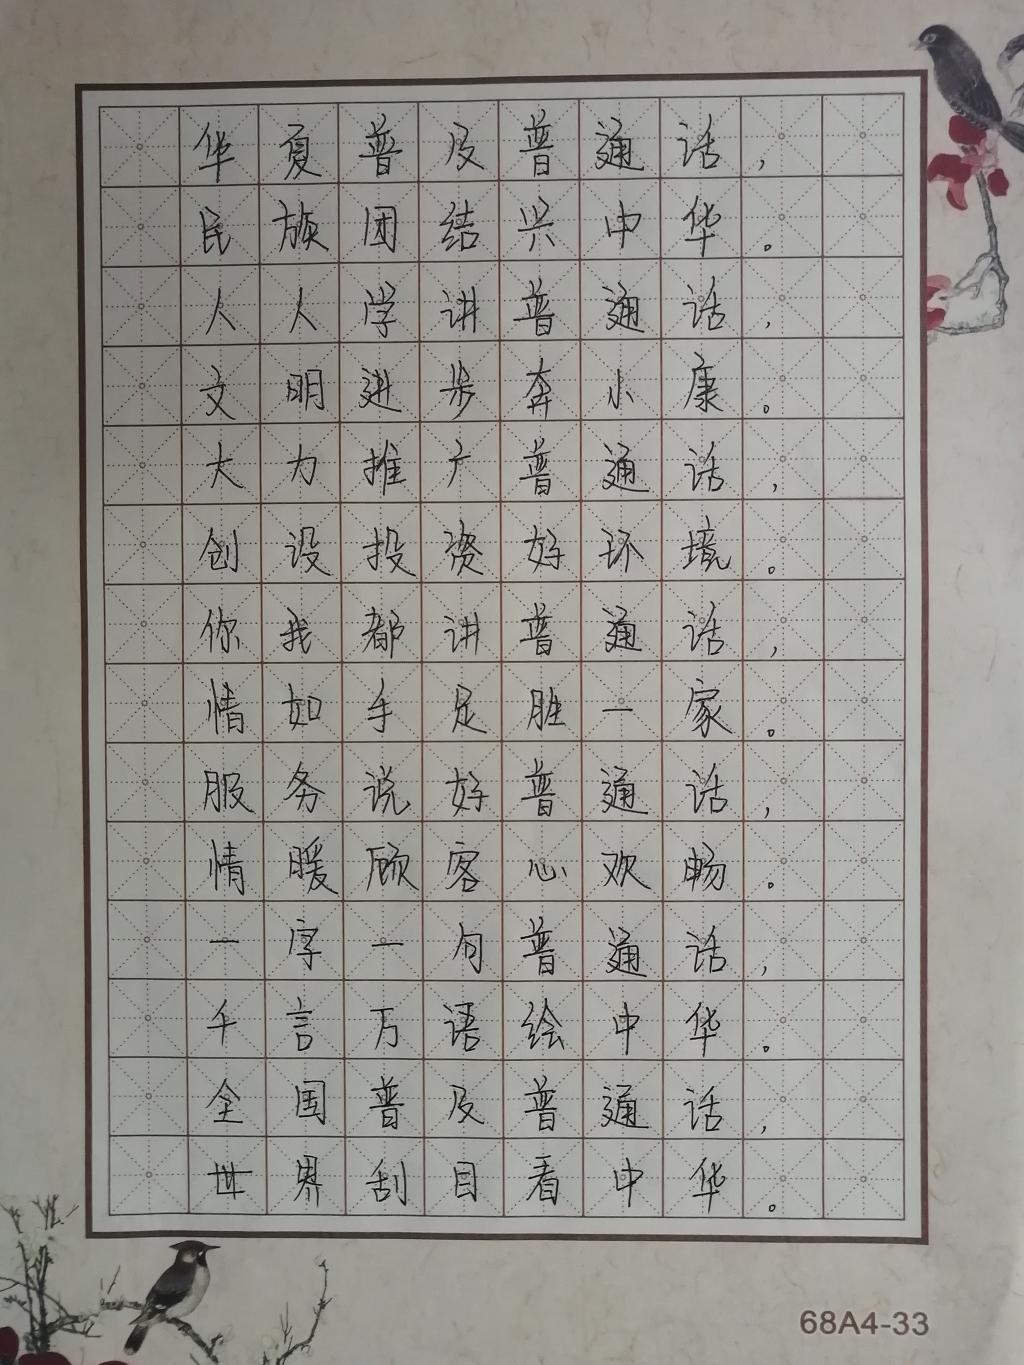 华夏普及普通话，
民族团结兴中华。
人人学讲普通话，
文明进步奔小康。
大力推广普通话，
创设投资好环境。
你我都讲普通话，
情如手足胜一家。
服务说好普通话，
情暖顾客心欢畅。
一字一句普通话，
千言万语绘中华。
全国普及普通话，
世界刮目看中华。
68A4-33